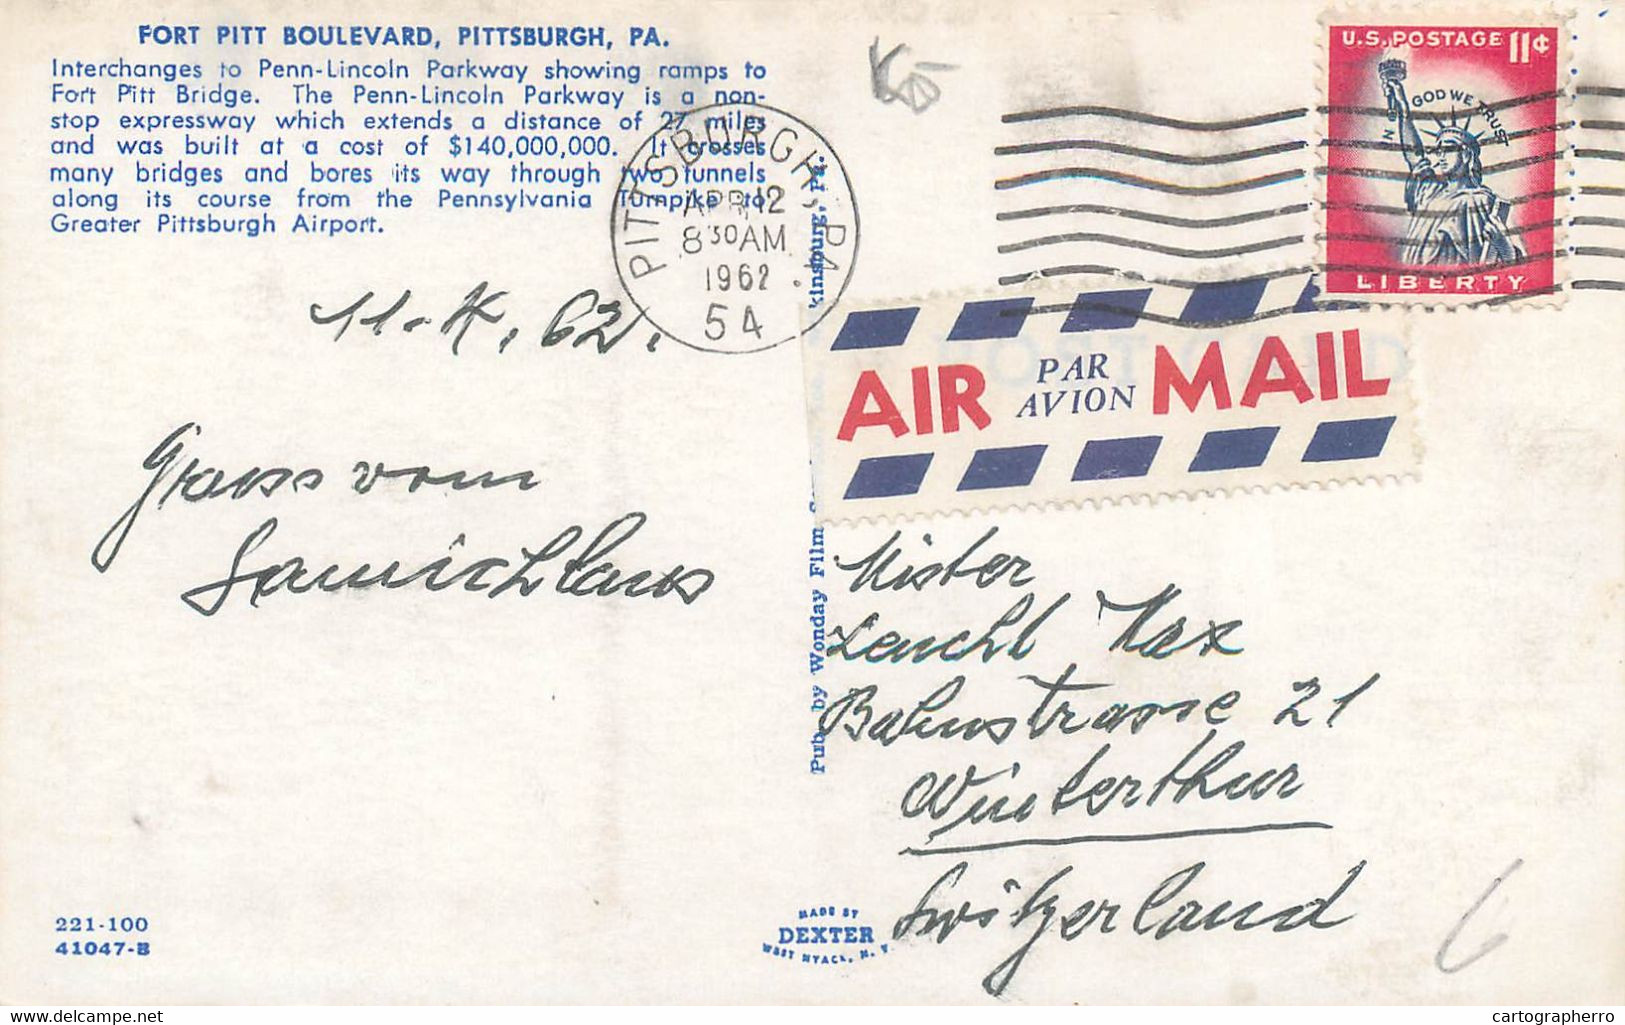 FORT PITT BOULEVARD, PITTSBURGH, PA.
Interchanges to Penn-Lincoln Parkway showing ramps to
Fort Pitt Bridge. The Penn-Lincoln Parkway is a non-
stop expressway which extends a distance of 27 miles
and was built at a cost of $140,000,000. It crosses
many bridges and bores its way through two tunnels
along its course from the Pennsylvania Turnpike to
Greater Pittsburgh Airport.
PITTSBURGH, PA.
APR 12
8 30 AM
1962
54
U.S. POSTAGE 11¢
IN GOD WE TRUST
LIBERTY
AIR PAR AVION MAIL
11. 4. 62.
Gruss vom
Samichlaus
Mister
Leucht Max
Bahnstrasse 21
Winterthur
Switzerland
Pub. by Wonday Film
kinsburg, Pa.
221-100
41047-B
MADE BY
DEXTER
WEST NYACK, N. Y.
6
delcampe.net
cartographerro